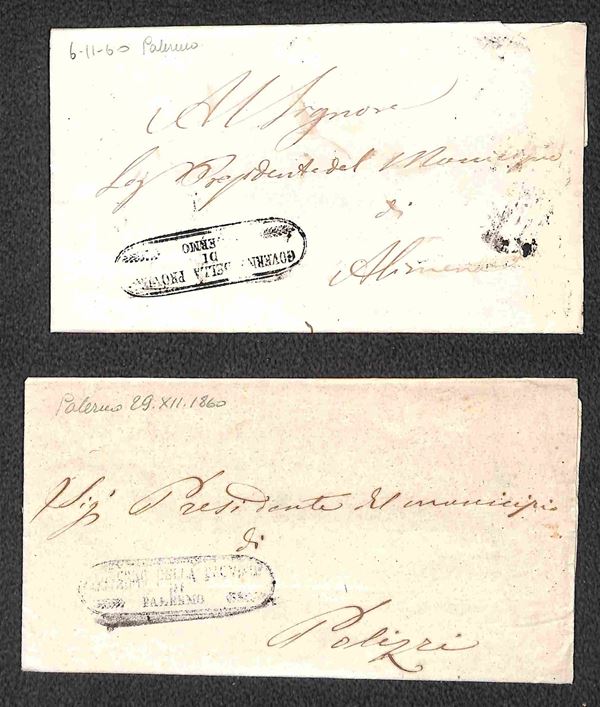 6-11-60 Palermo
Al Signore
Sig Presidente del Municipio
di
Alimena
GOVERNO DELLA PROVIN
DI
ERMO
Palermo 29.XII.1860
Sigr Presidente del municipio
di
DELLA
DI
PALERMO
Polizzi